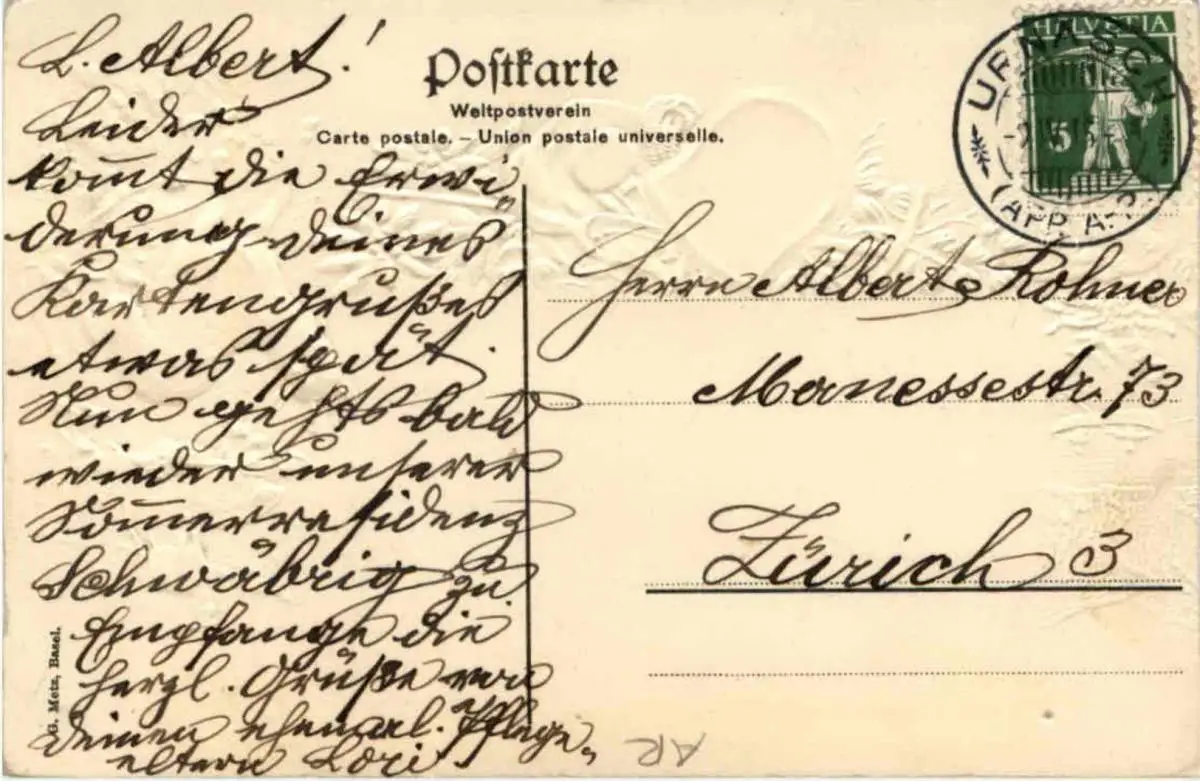 L. Albert!
Leider
kom̄t die Erwi„
derung deines
Kartengrußes
etwas spät.
Nun gehts bald
wieder unserer
Som̄erresidenz
Schwäbrig zu.
Empfange die
herzl. Grüße von
deinen ehemal. Pflege„
eltern
Postkarte
Weltpostverein
Carte postale. – Union postale universelle.
HELVETIA
5
URNÄSCH
(APP. A.-R.)
Herrn Albert Rohner
Manessestr. 73
Zürich 3
G. Metz, Basel.
AR